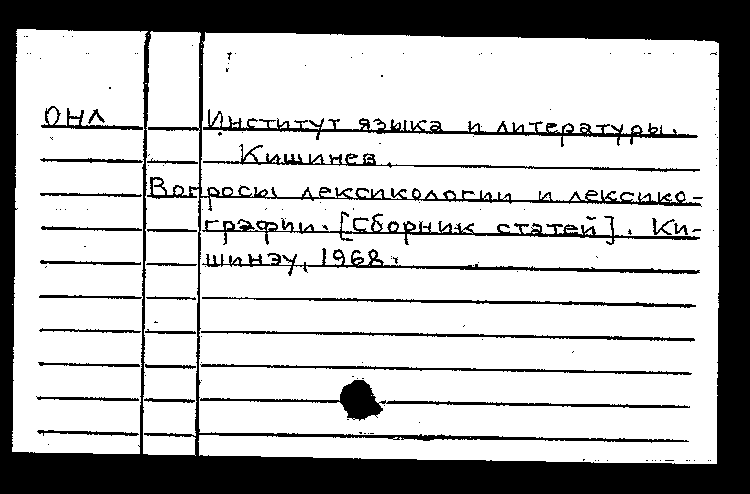 ОНЛ Институт языка и литературы.
Кишинев.
Вопросы лексикологии и лексико-
графии. [Сборник статей]. Ки-
шинэу, 1968.